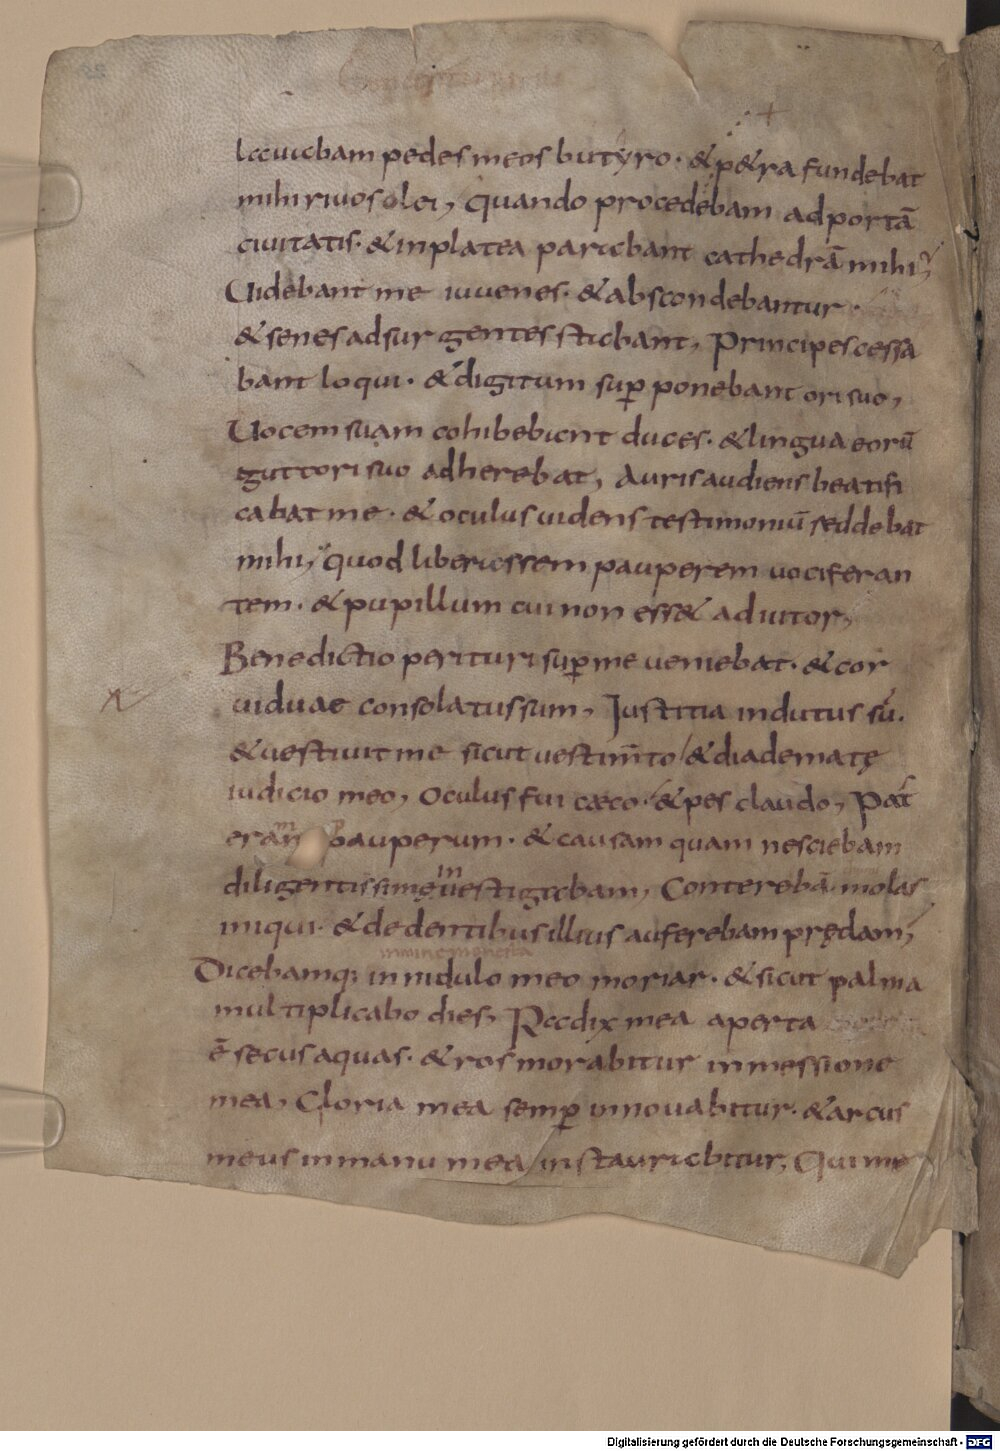 lauabam pedes meos butyro · & p&ra fundebat
mihi riuos olei, quando procedebam ad portā
ciuitatis · & in platea parabant cathedrā mihi,
Uidebant me iuuenes · & abscondebantur ·
& senes adsurgentes stabant, Principes cessa
bant loqui · & digitum sup̄ ponebant ori suo,
Uocem suam cohibebant duces · & lingua eorū
gutturi suo adherebat, Auris audiens beatifi
cabat me · & oculus uidens testimoniū reddebat
mihi, quod liberassem pauperem uociferan
tem · & pupillum cui non ess& adiutor,
Benedictio perituri sup̄ me ueniebat · & cor
uiduae consolatus sum, Justitia indutus sū ·
& uestiuit me sicut uestim̄to & diademate
iudicio meo, Oculus fui cæco · & pes claudo, Pat
eram pauperum · & causam quam nesciebam
diligentissime inuestigabam, Conterebā molas
iniqui · & de dentibus illius auferebam prędam,
Dicebamq; in nidulo meo moriar · & sicut palma
multiplicabo dies, Radix mea aperta
ē secus aquas · & ros morabitur in messione
mea, Gloria mea semp̄ innouabitur · & arcus
meus in manu mea instaurabitur, Qui me
Digitalisierung gefördert durch die Deutsche Forschungsgemeinschaft - DFG